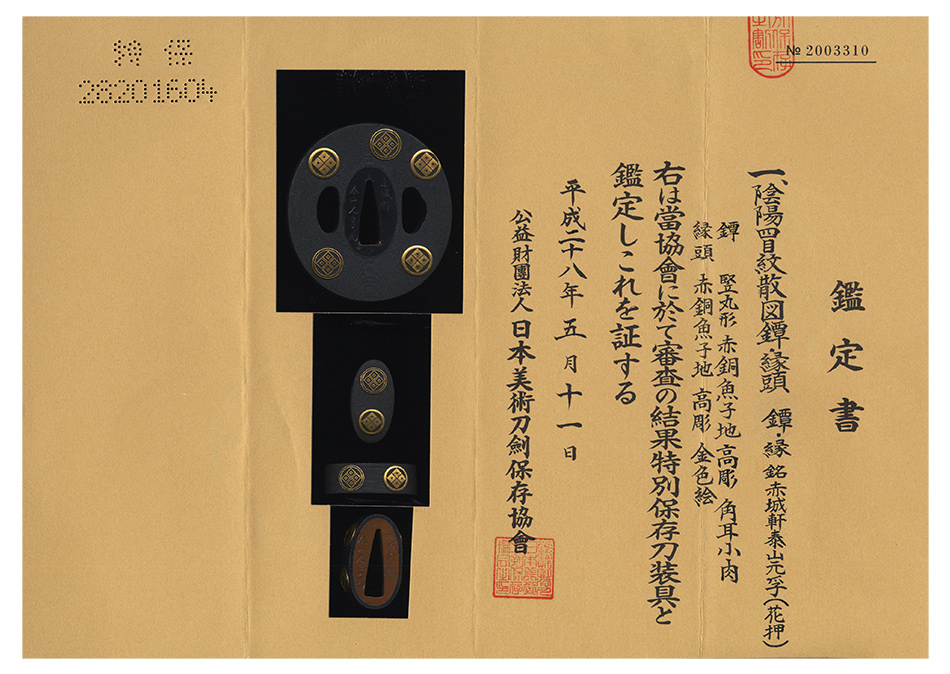 № 2003310
特 保
28201604
鑑定書
一、陰陽四目紋散図鐔・縁頭 鐔・縁 銘 赤城軒泰山元孚(花押)
鐔 竪丸形 赤銅魚子地 高彫 角耳小肉
縁頭 赤銅魚子地 高彫 金色絵
右は當協會に於て審査の結果特別保存刀装具と
鑑定しこれを証する
平成二十八年 五月十一日
公益財團法人 日本美術刀劍保存協會